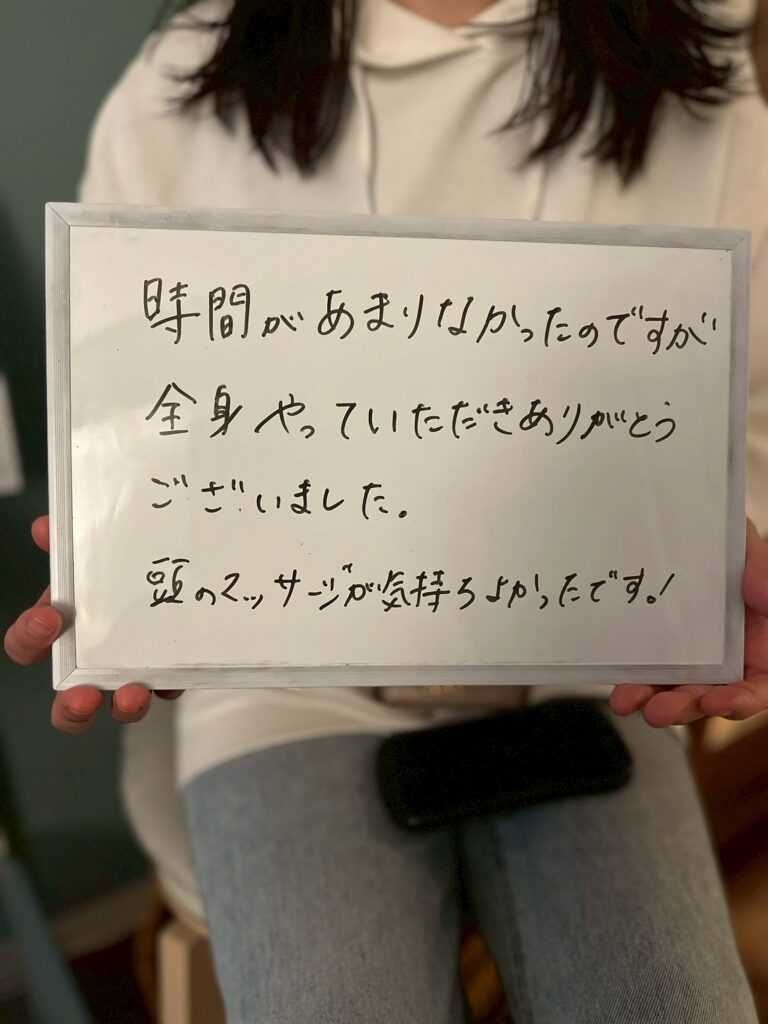 時間があまりなかったのですが
全身やっていただきありがとう
ございました。
頭のマッサージが気持ちよかったです。!